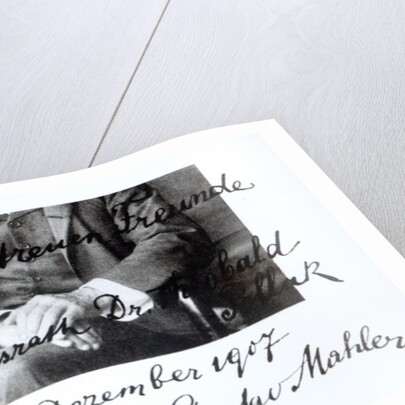 treuen Freunde
srath Dr. Theobald
Pollak
Dezember 1907
Gustav Mahler